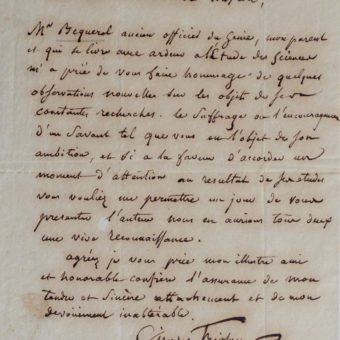 Mr Becquerel ancien officier du Génie, mon parent
et qui se livre avec ardeur a l'Etude des sciences
m'a prié de vous faire hommage de quelques
observations nouvelles sur les objets de ses
constantes recherches. Le suffrage ou l'encouragement
d'un Savant tel que vous est l'objet de son
ambition, et si a la faveur d'accorder un
moment d'attention au resultat de ses études
vous vouliez me permettre un jour de vous
presenter l'auteur nous en aurions tous deux
une vive reconnaissance.
agréez je vous prie mon illustre ami
et honorable confrère l'assurance de mon
tendre et sincère attachement et de mon
devoüement inaltérable.